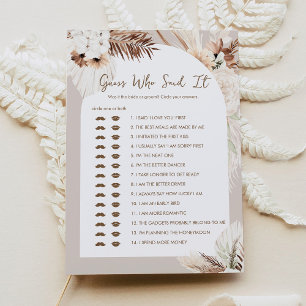 Guess Who Said It
Was it the bride or groom? Circle your answer.
circle one or both
1. I SAID I LOVE YOU FIRST
2. THE BEST MEALS ARE MADE BY ME
3. I INITIATED THE FIRST KISS
4. I USUALLY SAY I AM SORRY FIRST
5. I'M THE NEAT ONE
6. I'M THE BETTER DANCER
7. I TAKE LONGER TO GET READY
8. I AM THE BETTER DRIVER
9. I ALWAYS SAY HOW LUCKY I AM
10. I AM AN EARLY BIRD
11. I AM MORE ROMANTIC
12. THE GADGETS PROBABLY BELONG TO ME
13. I'M PLANNING THE HONEYMOON
14. I SPEND MORE MONEY